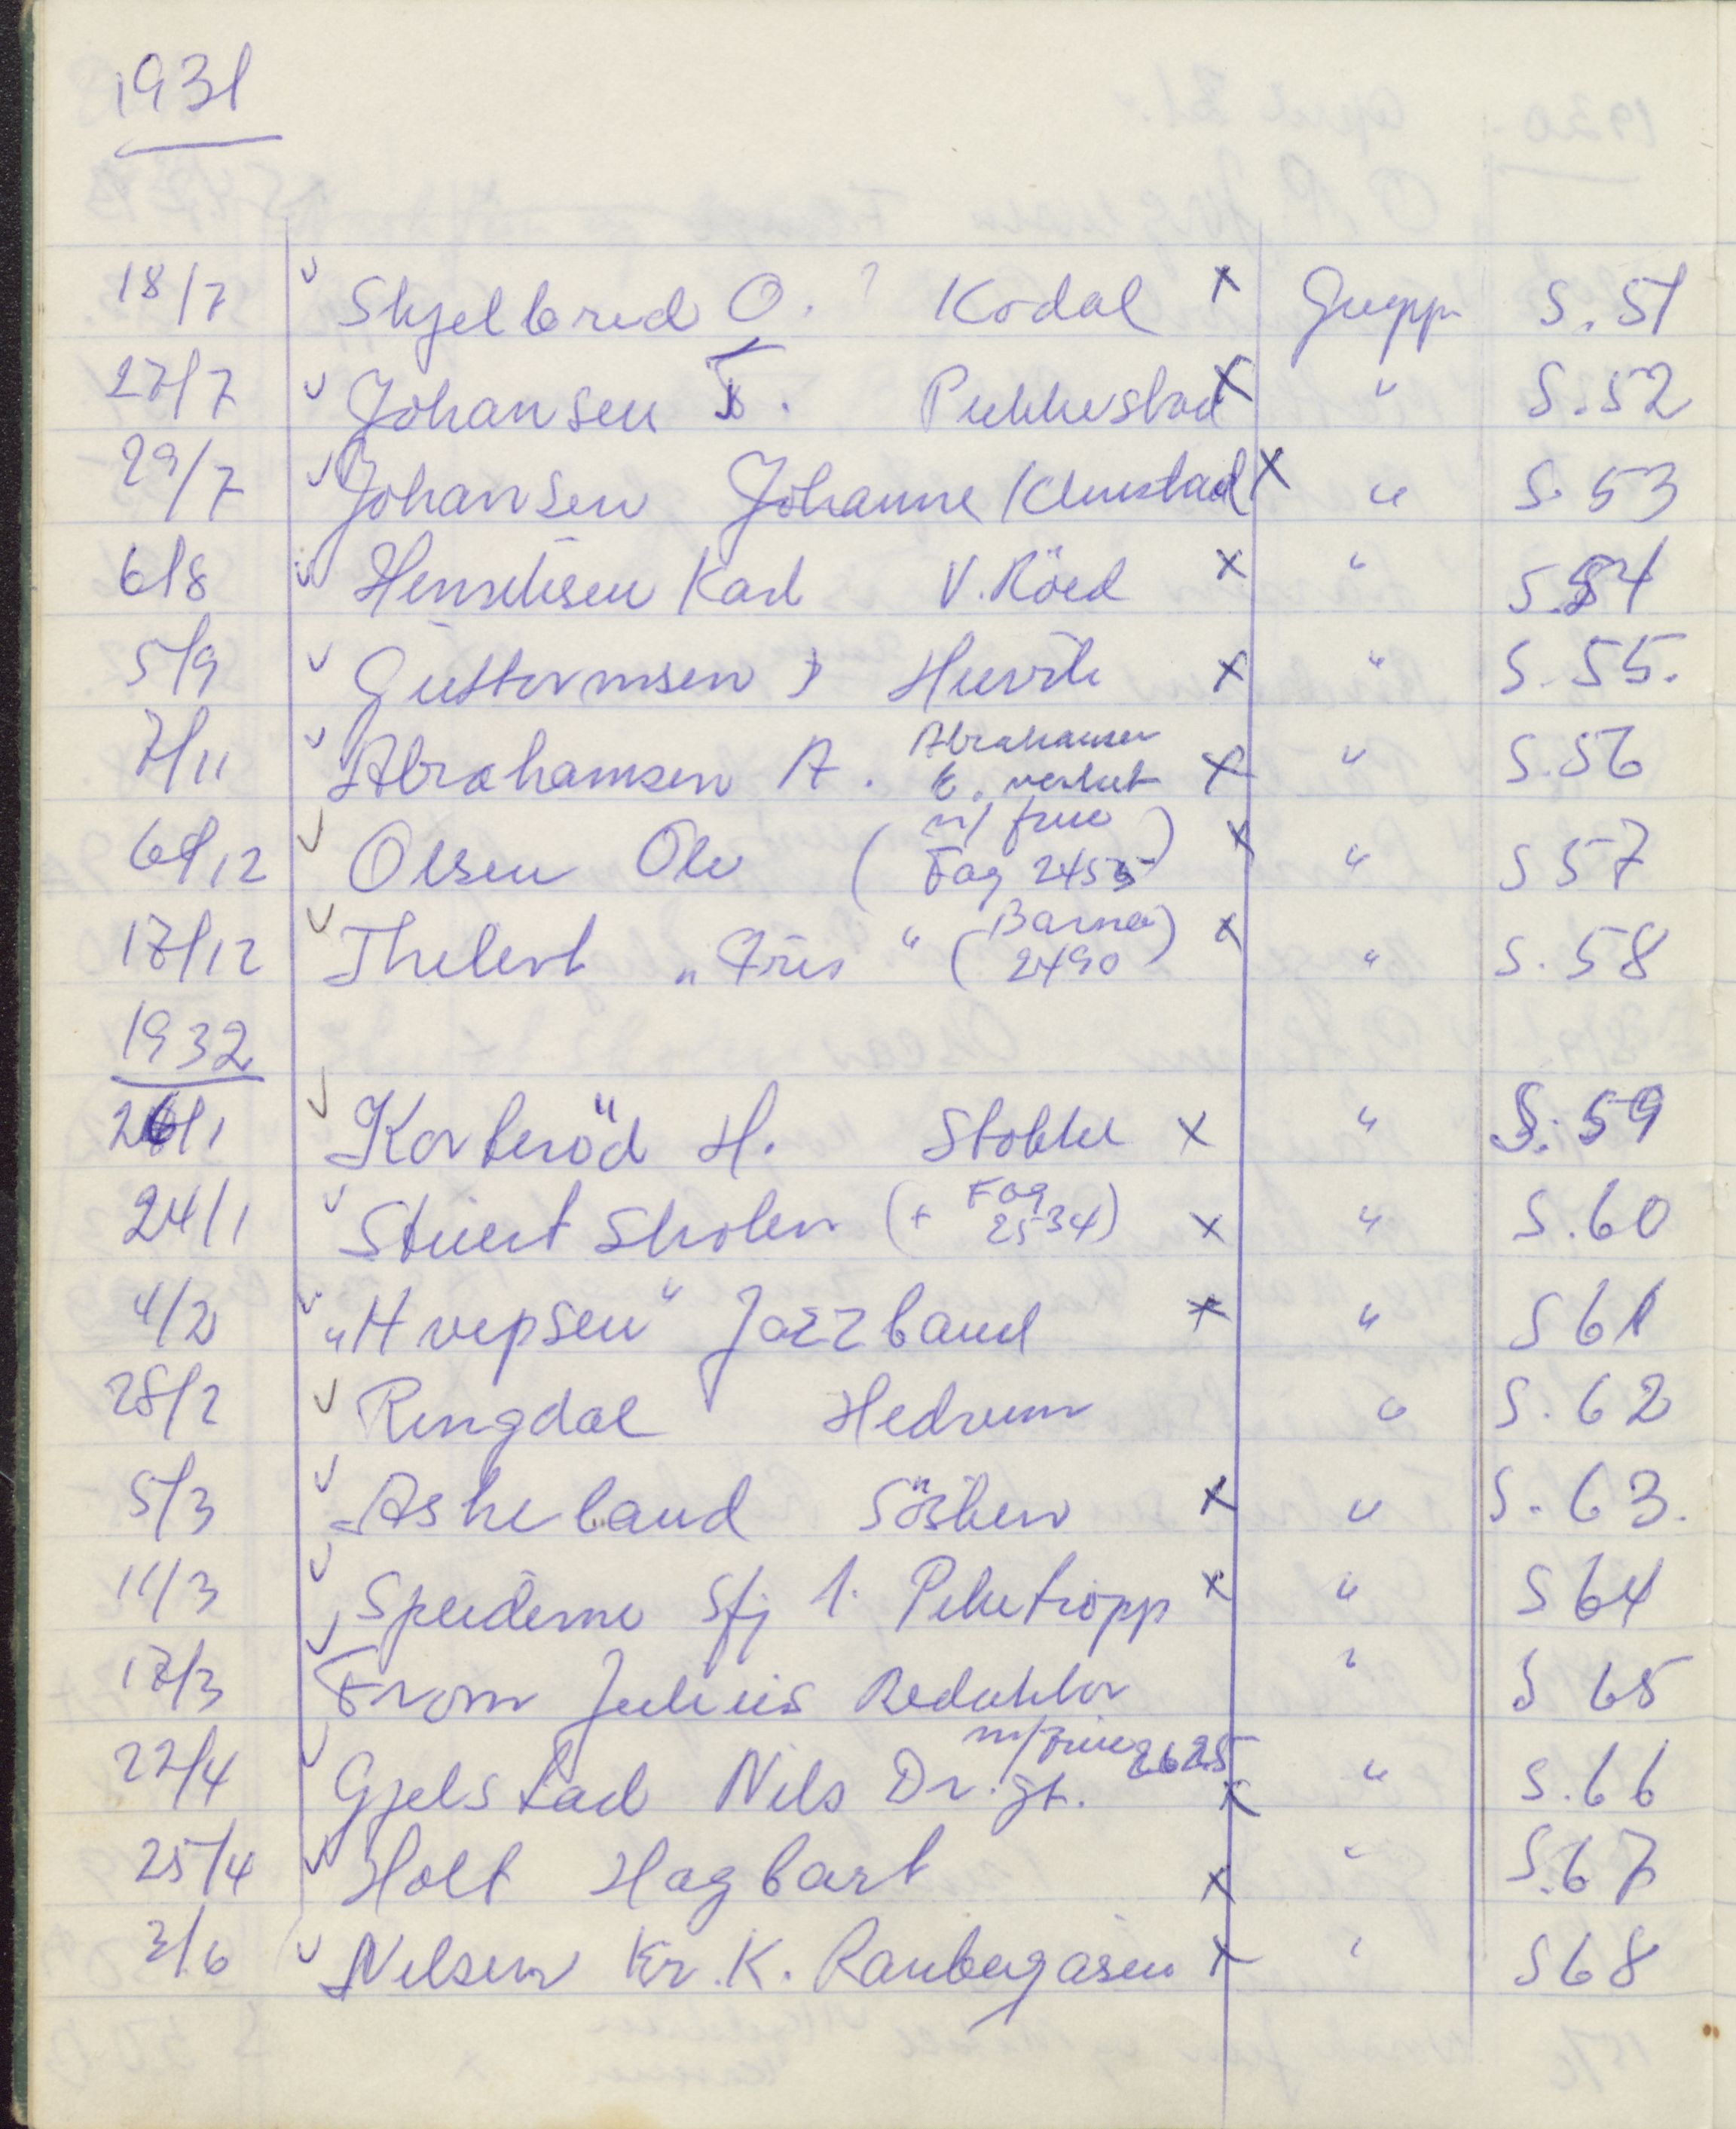 1931
18/7 Skjelbred O. ? Kodal x Grupp S. 51
27/7 Johansen T. Pukkestad x " S. 52
29/7 Johansen Johanne Klinestad x " S. 53
6/8 Henriksen Karl V. Röed x " S. 54
5/9 Guttormsen Huvik x " S. 55.
7/11 Abrahamsen A. Abrahamsen E. verkut x " S. 56
6/12 Olsen Ole (m/ frue Fag 2455) x " S 57
17/12 Thelert „Fris" (Barna 2490) x " S. 58
1932
26/1 Korteröd H. Stokke x " S. 59
24/1 Stuert Skolen (+ Fag 2534) x " S. 60
4/2 „Hvepsen" Jazzband x " S 61
28/2 Ringdal Hedrum " S. 62
5/3 Askeland Sösken x " S. 63.
11/3 Speiderne Sfj 1. Piketropp x " S 64
17/3 From Julius Redaktör " S 65
22/4 Gjelstad Nils Dr. gt. m/Frue 2625 x " S. 66
25/4 Holt Hagbart x " S. 67
3/6 Nilsen Kr. K. Ranbergåsen x " S 68